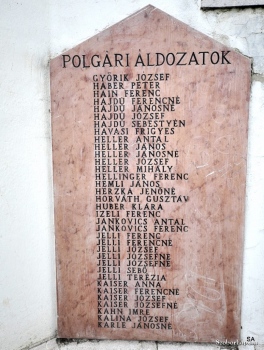 POLGÁRI ÁLDOZATOK
GYŐRIK JÓZSEF
HÁBER PÉTER
HAIN FERENC
HAJDÚ FERENCNÉ
HAJDÚ JÁNOSNÉ
HAJDÚ JÓZSEF
HAJDÚ SEBESTYÉN
HAVASI FRIGYES
HELLER ANTAL
HELLER JÁNOS
HELLER JÁNOSNÉ
HELLER JÓZSEF
HELLER MIHÁLY
HELLINGER FERENC
HEMLI JÁNOS
HERZKA JENŐNÉ
HORVÁTH GUSZTÁV
HUBER KLÁRA
IZELI FERENC
JANKOVICS ANTAL
JANKOVICS FERENC
JELLI FERENC
JELLI FERENCNÉ
JELLI JÓZSEF
JELLI JÓZSEFNÉ
JELLI JÓZSEFNÉ
JELLI SEBŐ
JELLI TERÉZIA
KAISER ANNA
KAISER FERENCNÉ
KAISER JÓZSEF
KAISER JÓZSEFNÉ
KAHN IMRE
KALINA JÓZSEF
KARLE JÁNOSNÉ
SA